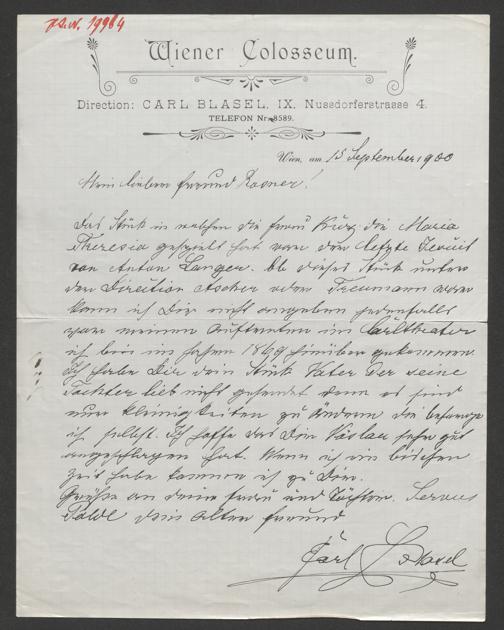 J.N. 19984
Wiener Colosseum.
Direction: CARL BLASEL, IX. Nussdorferstrasse 4.
TELEFON Nr. 8589.
Wien, am 15 September 1900
Mein lieber Freund Rosner!
Das Stück in welchem die Frau Kurz die Maria
Theresia gespielt hat war der letzte Jesuit
von Anton Langer. Ob dieses Stück unter
der Direktion Ascher oder Treumann war
kann ich Dir nicht angeben jedenfalls
vor meinem Auftreten im Carltheater
ich bin im Jahre 1869 hinüber gekommen.
Ich habe Dir dein Stück Vater der seine
Tochter liebt nicht gesendet denn es sind
nur Kleinigkeiten zu ändern die besorge
ich selbst. Ich hoffe das Dir Vöslau sehr gut
angeschlagen hat. Wenn ich ein bischen
Zeit habe komme ich zu Dir.
Grüsse an deine Frau und Töchter. Servus
Poldl dein alter Freund
Carl Blasel